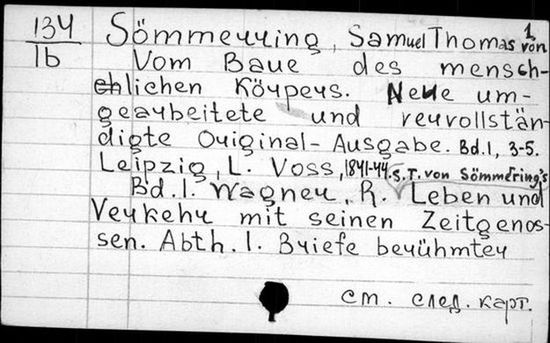 134
1b
1
Sömmerring, Samuel Thomas von
Vom Baue des mensch-
lichen Körpers. Neue um-
gearbeitete und vervollstän-
digte Original-Ausgabe. Bd.1, 3-5.
Leipzig, L. Voss, 1841-44.
Bd.1. Wagner, R. S.T. von Sömmering's Leben und
Verkehr mit seinen Zeitgenos-
sen. Abth.1. Briefe berühmter
см. след. карт.